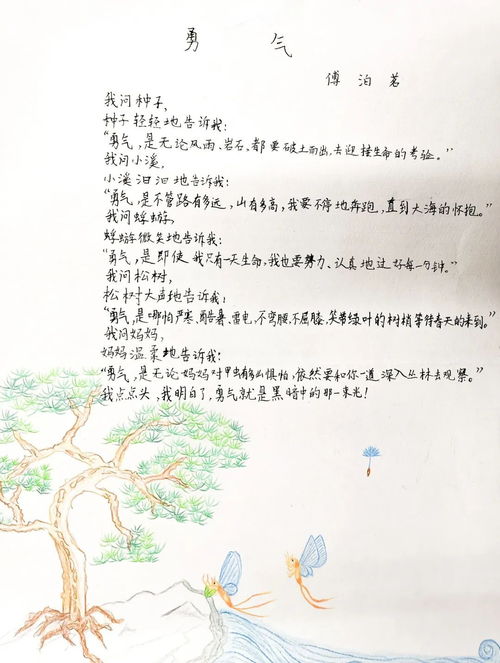 勇 气
傅泊茗
我问种子,
种子轻轻地告诉我:
“勇气,是无论风雨、岩石、都要破土而出,去迎接生命的考验。”
我问小溪,
小溪汩汩地告诉我:
“勇气,是不管路有多远,山有多高,我要不停地奔跑,直到大海的怀抱。”
我问蜉蝣,
蜉蝣微笑地告诉我:
“勇气,是即使我只有一天生命,我也要努力、认真地过好每一分钟。”
我问松树,
松树大声地告诉我:
“勇气,是哪怕严寒、酷暑、雷电,不弯腰,不屈膝,笑带绿叶的树梢等待春天的来到。”
我问妈妈,
妈妈温柔地告诉我:
“勇气,是无论妈妈对甲虫有多么惧怕,依然要和你一道深入丛林去观察。”
我点点头,我明白了,勇气就是黑暗中的那一束光!